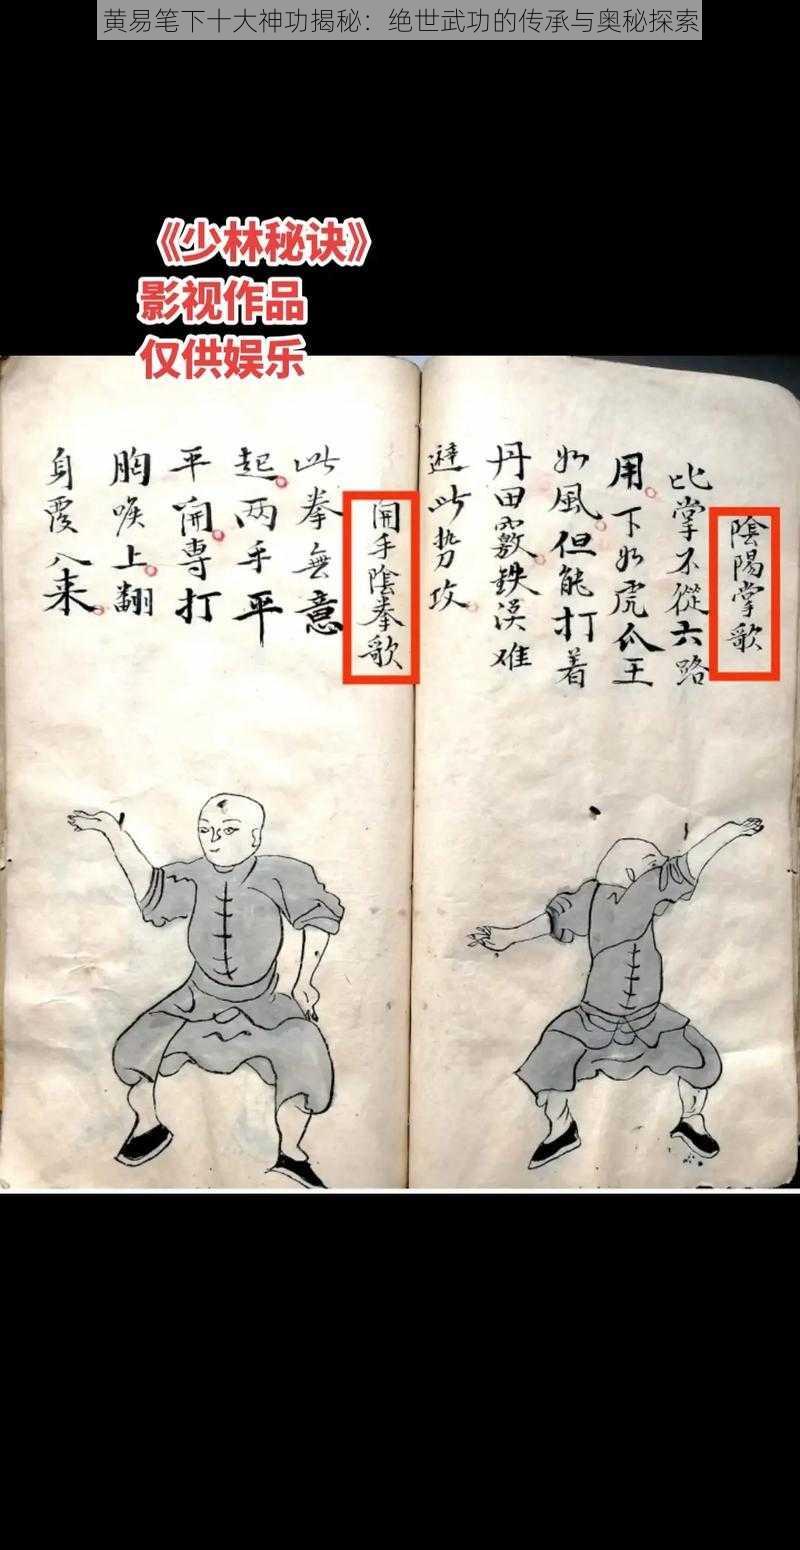 黄易笔下十大神功揭秘：绝世武功的传承与奥秘探索
《少林秘诀》
影视作品
仅供娱乐
陰陽掌歌
此掌不從六路
用下如虎爪王
如風但能打着
丹田竅鉄漢难
避此势攻
開手陰拳歌
此拳無意
起两手平
平開專打
胸喉上翻
身覆入来